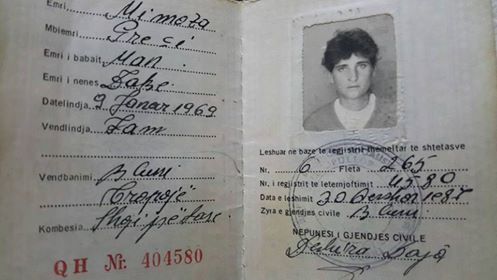 Emri, Mimoza
Mbiemri Preçi
Emri i babait Man
Emri i nenes Zake
Datelindja 9 Janar 1969
Vendlindja
Vendbanimi B Curri
Tropojë
Kombesia Shqipëtare
QH Nr: 404580
Leshuar ne baze te regjistrit themeltar te shtetasve
Nr. 6 Fleta 265
Nr. i regjistrit te leternjoftimit 4580
Data e leshimit 30 1987
Zyra e gjendjes civile B Curri
NEPUNESI I GJENDJES CIVILE